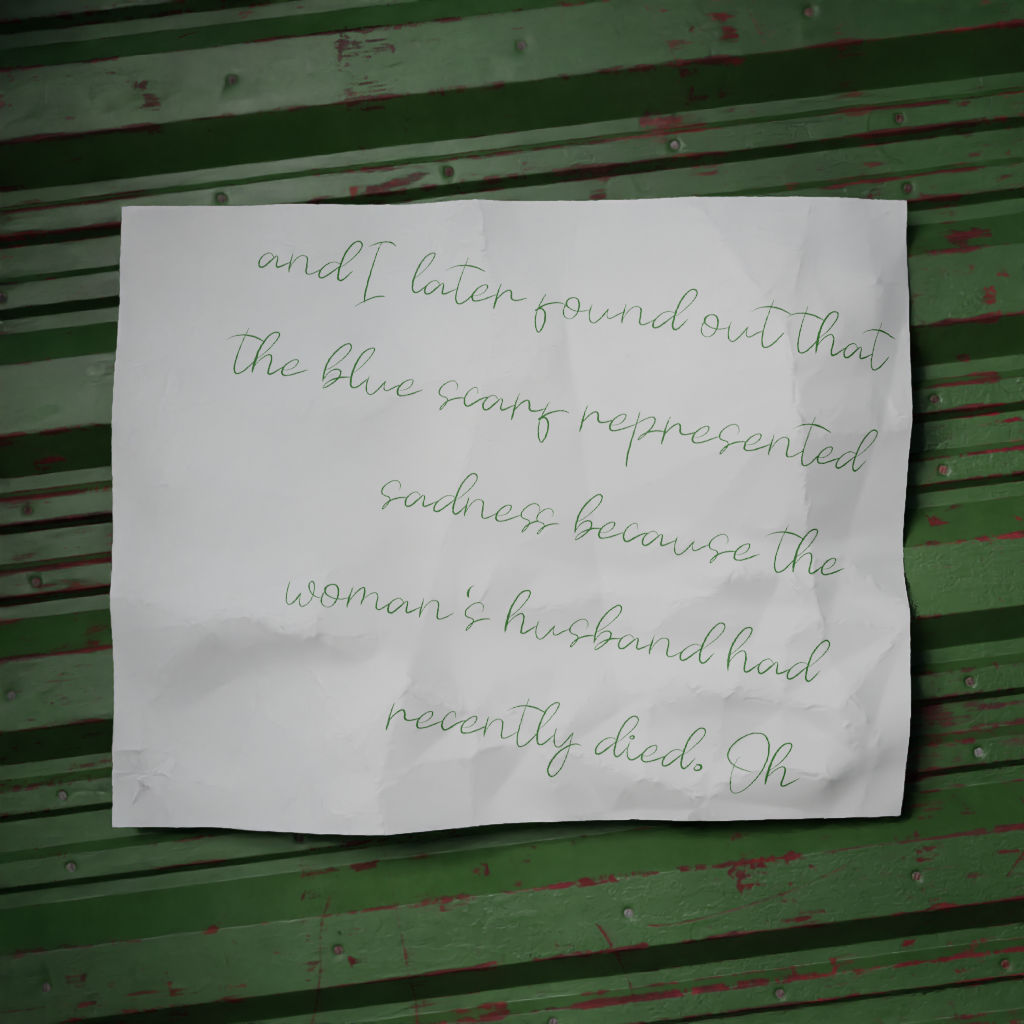 and I later found out that
the blue scarf represented
sadness because the
woman's husband had
recently died. Oh